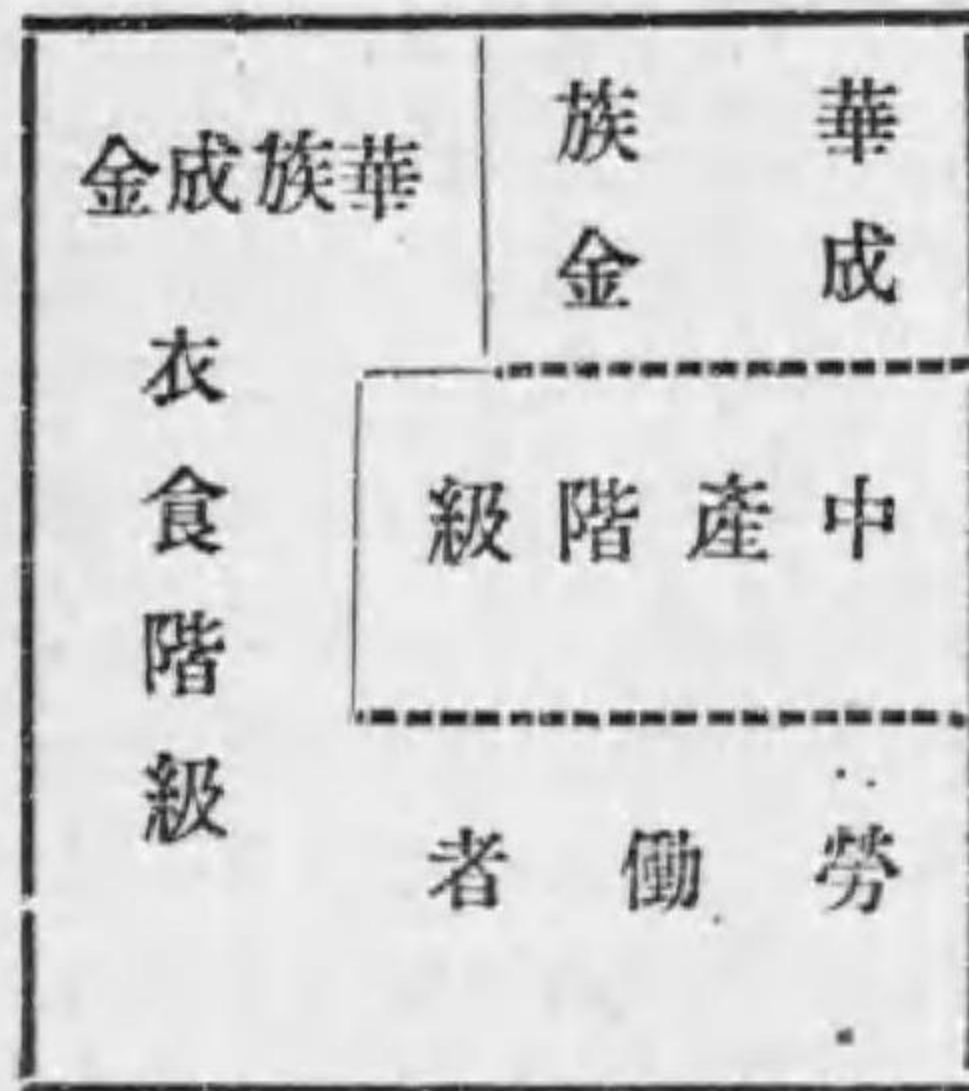 華族
成金
中產階級
勞働者
華族成金
衣食階級